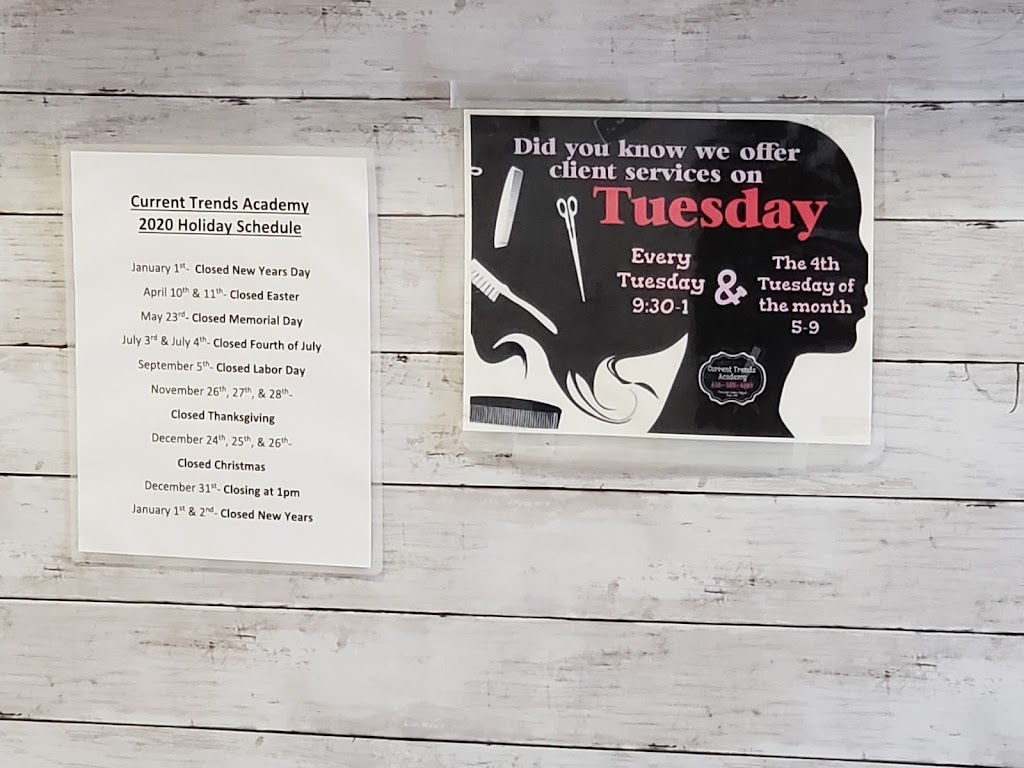 Current Trends Academy
2020 Holiday Schedule
January 1st- Closed New Years Day
April 10th & 11th- Closed Easter
May 23rd- Closed Memorial Day
July 3rd & July 4th- Closed Fourth of July
September 5th- Closed Labor Day
November 26th, 27th, & 28th-
Closed Thanksgiving
December 24th, 25th, & 26th-
Closed Christmas
December 31st- Closing at 1pm
January 1st & 2nd- Closed New Years
Did you know we offer
client services on
Tuesday
Every
Tuesday
9:30-1
&
The 4th
Tuesday of
the month
5-9
Current Trends
Academy